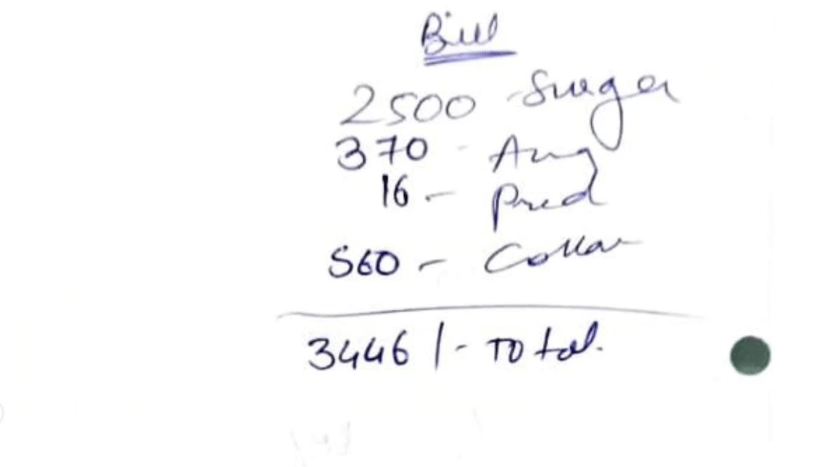 Bill
2500 - Surger
370 - Aug
16 - Pred
560 - Collar
3446/- Total.